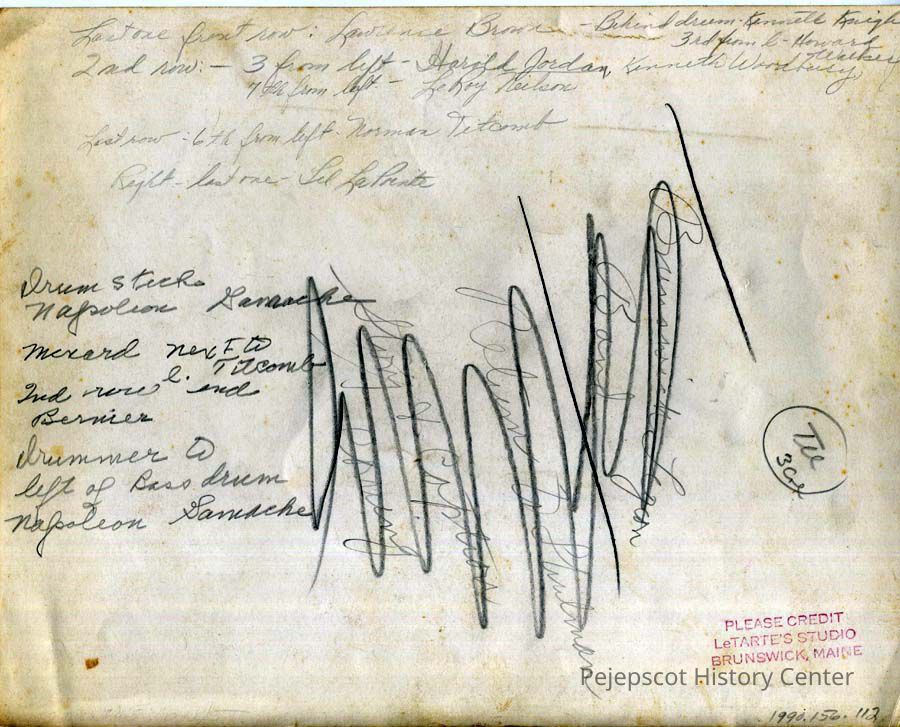 Last one front row: Lawrence Brown - Behind drum - Kenneth Knight
3rd from l - Howard
2nd row: - 3 from left - Harold Jordan, Kenneth Woodbury
7th from left - LeRoy Neilson
Last row - 6th from left - Norman Titcomb
Right - last one - LaPointe
Drum sticks
Napoleon Gamache
Menard next to
l. Titcomb
2nd row end
Bernier
Drummer to
left of Bass drum
Napoleon Gamache
Brunswick
Band
Return to
TW
3 Col
PLEASE CREDIT
LeTARTE'S STUDIO
BRUNSWICK, MAINE
Pejepscot History Center
1990.156.112